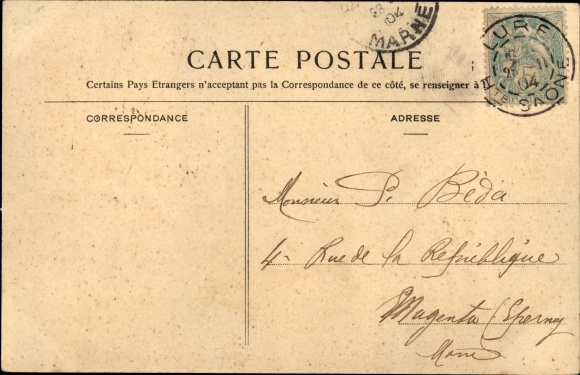 28
04
MARNE
LURE
11
04
HTE SAONE
CARTE POSTALE
Certains Pays Etrangers n'acceptant pas la Correspondance de ce côté, se renseigner à
CORRESPONDANCE
ADRESSE
Monsieur P. Béda
4 - Rue de la République
Magenta (Epernay
Marne